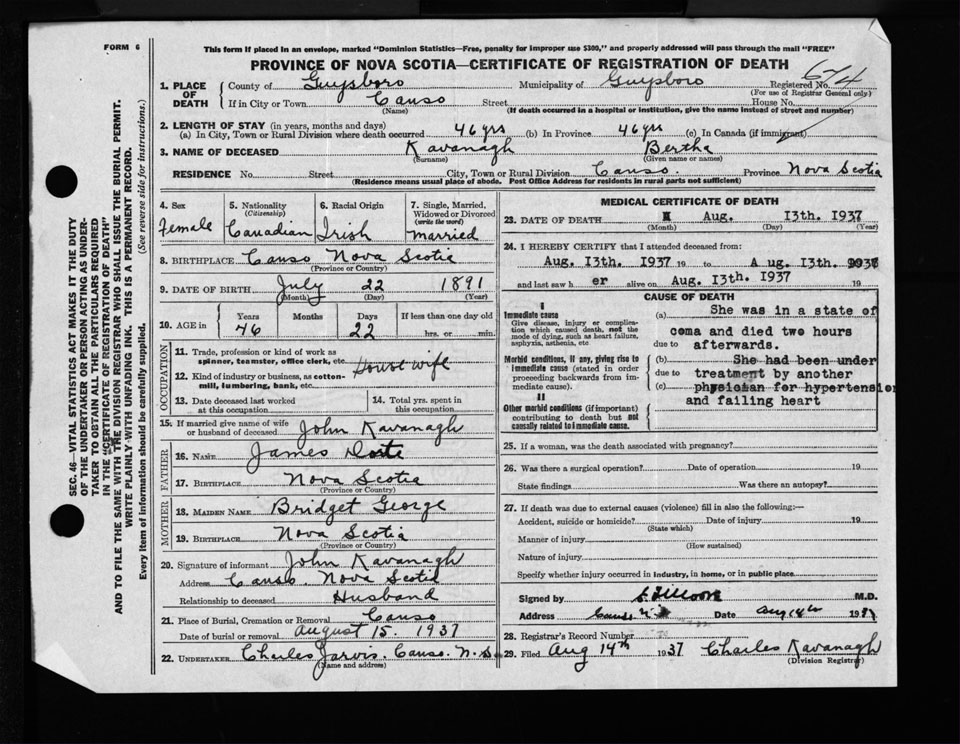 FORM 6
This form if placed in an envelope, marked "Dominion Statistics—Free, penalty for improper use $300," and properly addressed will pass through the mail "FREE"
PROVINCE OF NOVA SCOTIA—CERTIFICATE OF REGISTRATION OF DEATH
SEC. 46—VITAL STATISTICS ACT MAKES IT THE DUTY
OF THE UNDERTAKER OR PERSON ACTING AS UNDER-
TAKER TO OBTAIN ALL THE PARTICULARS REQUIRED
IN THE "CERTIFICATE OF REGISTRATION OF DEATH"
AND TO FILE THE SAME WITH THE DIVISION REGISTRAR WHO SHALL ISSUE THE BURIAL PERMIT.
WRITE PLAINLY WITH UNFADING INK. THIS IS A PERMANENT RECORD.
Every item of information should be carefully supplied. (See reverse side for instructions.)
1. PLACE OF DEATH
County of Guysboro Municipality of Guysboro Registered No. 674
(For use of Registrar General only)
If in City or Town Canso Street House No.
(Name) (If death occurred in a hospital or institution, give the name instead of street and number)
2. LENGTH OF STAY (in years, months and days)
(a) In City, Town or Rural Division where death occurred 46 yrs (b) In Province 46 yrs (c) In Canada (if immigrant)
3. NAME OF DECEASED Kavanagh Bertha
(Surname) (Given name or names)
RESIDENCE No. Street City, Town or Rural Division Canso. Province Nova Scotia
(Residence means usual place of abode. Post Office Address for residents in rural parts not sufficient)
4. Sex
Female
5. Nationality
(Citizenship)
Canadian
6. Racial Origin
Irish
7. Single, Married, Widowed or Divorced
(write the word)
Married
8. BIRTHPLACE Canso Nova Scotia
(Province or Country)
9. DATE OF BIRTH July 22 1891
(Month) (Day) (Year)
10. AGE in
Years Months Days If less than one day old
46 22 hrs. or min.
OCCUPATION
11. Trade, profession or kind of work as
spinner, teamster, office clerk, etc. Housewife
12. Kind of industry or business, as cotton-
mill, lumbering, bank, etc.
13. Date deceased last worked
at this occupation
14. Total yrs. spent in
this occupation
15. If married give name of wife
or husband of deceased John Kavanagh
FATHER
16. NAME James
17. BIRTHPLACE Nova Scotia
(Province or Country)
MOTHER
18. MAIDEN NAME Bridget George
19. BIRTHPLACE Nova Scotia
(Province or Country)
20. Signature of informant John Kavanagh
Address Canso. Nova Scotia
Relationship to deceased Husband
21. Place of Burial, Cremation or Removal Canso
Date of burial or removal August 15. 1937
22. UNDERTAKER Charles Jarvis. Canso. N. S.
(Name and address)
MEDICAL CERTIFICATE OF DEATH
23. DATE OF DEATH Aug. 13th. 1937
(Month) (Day) (Year)
24. I HEREBY CERTIFY that I attended deceased from:
Aug. 13th. 1937 19 to Aug. 13th. 1937
and last saw h er alive on Aug. 13th. 1937 19
CAUSE OF DEATH
I
Immediate cause
Give disease, injury or complica-
tion which caused death, not the
mode of dying, such as heart failure,
asphyxia, asthenia, etc
(a) She was in a state of
coma and died two hours
due to afterwards.
Morbid conditions, if any, giving rise to
immediate cause (stated in order
proceeding backwards from im-
mediate cause).
(b) She had been under
due to treatment by another
(c) physician for hypertension
and failing heart
II
Other morbid conditions (if important)
contributing to death but not
causally related to immediate cause.
25. If a woman, was the death associated with pregnancy?
26. Was there a surgical operation? Date of operation 19
State findings Was there an autopsy?
27. If death was due to external causes (violence) fill in also the following:—
Accident, suicide or homicide? Date of injury 19
(State which)
Manner of injury
(How sustained)
Nature of injury
Specify whether injury occurred in industry, in home, or in public place
Signed by M.D.
Address Canso N.S. Date Aug 14th 1937
28. Registrar's Record Number
29. Filed Aug 14th 1937 Charles Kavanagh
(Division Registrar)